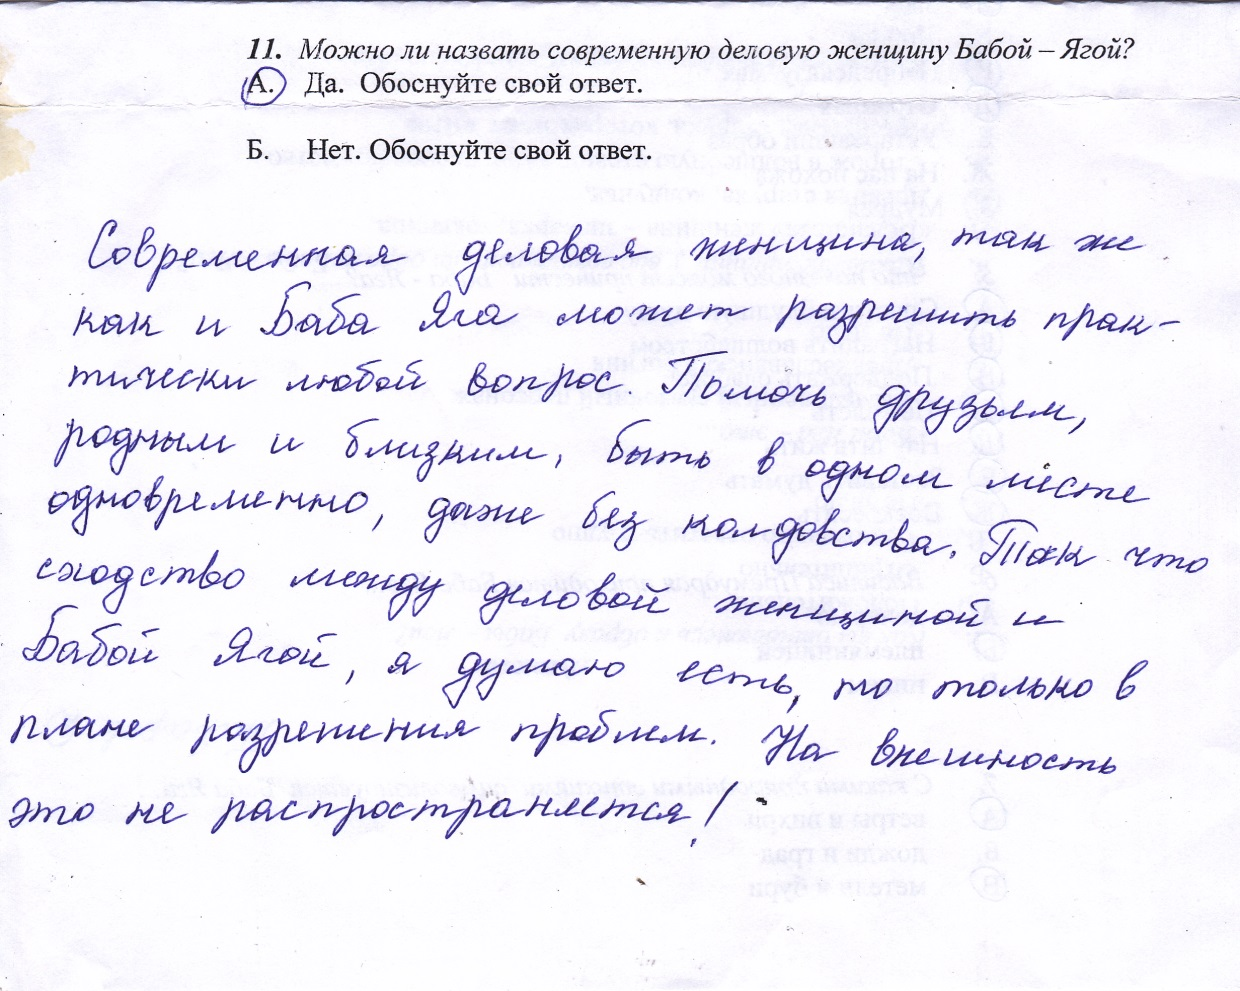 11. Можно ли назвать современную деловую женщину Бабой – Ягой?
А. Да. Обоснуйте свой ответ.
Б. Нет. Обоснуйте свой ответ.
Современная деловая женщина, так же
как и Баба Яга может разрешить прак-
тически любой вопрос. Помочь друзьям,
родным и близким, быть в одном месте
одновременно, даже без колдовства. Так что
сходство между деловой женщиной и
Бабой Ягой, я думаю есть, но только в
плане разрешения проблем. На внешность
это не распространяется!